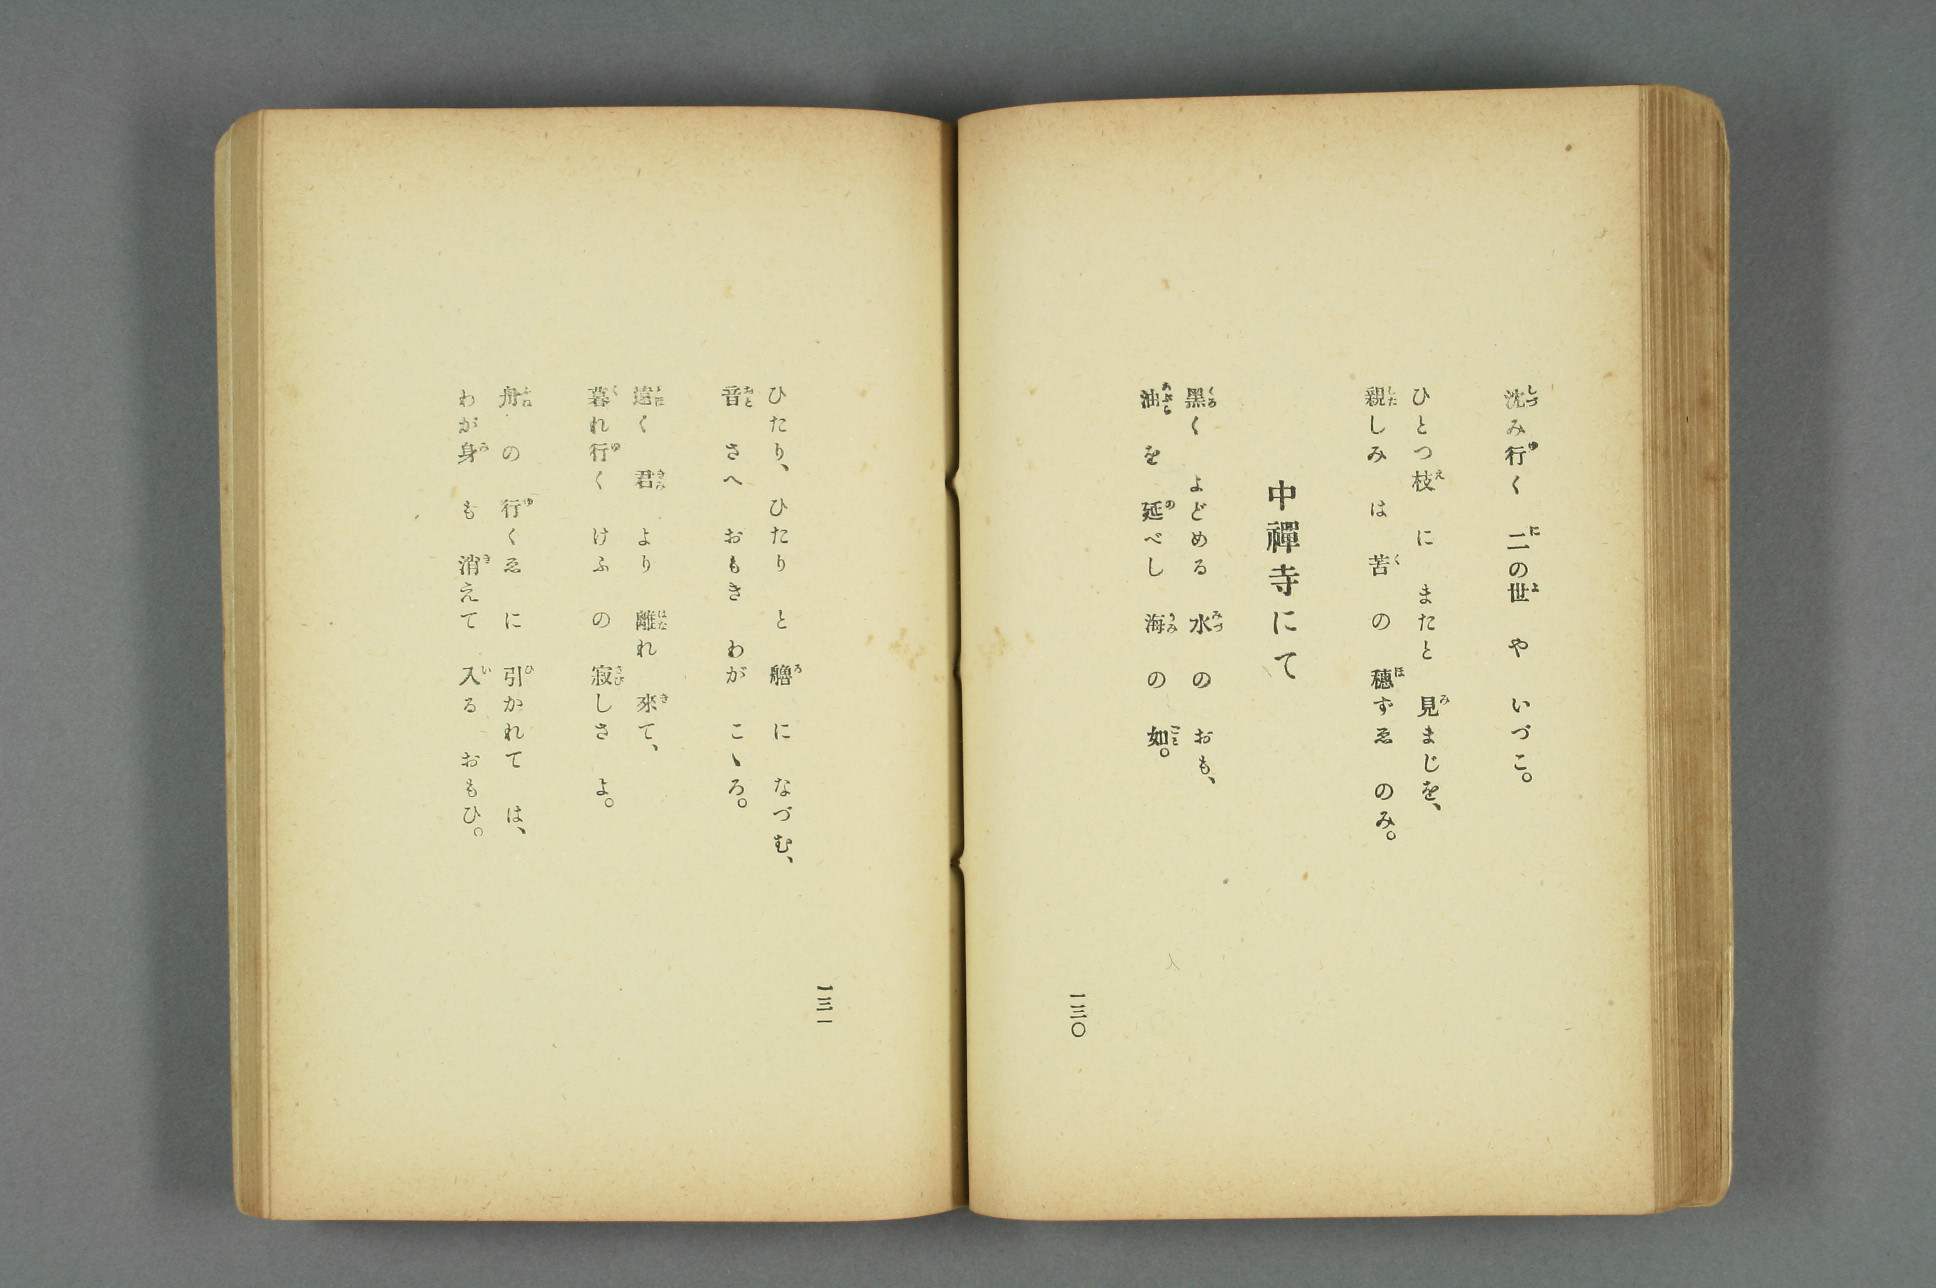 沈み行く 二の世 や いづこ。
ひとつ枝 に またと 見まじを、
親しみ は 苦 の 穗ずゑ のみ。
中禪寺にて
黑く よどめる 水 の おも、
油 を 延べし 海 の 如。
一三〇
ひたり、ひたり と 艪 に なづむ、
音 さへ おもき わが こゝろ。
遠く 君 より 離れ 來て、
暮れ行く けふ の 寂しさ よ。
舟 の 行くゑ に 引かれて は、
わが身 も 消えて 入る おもひ。
一三一